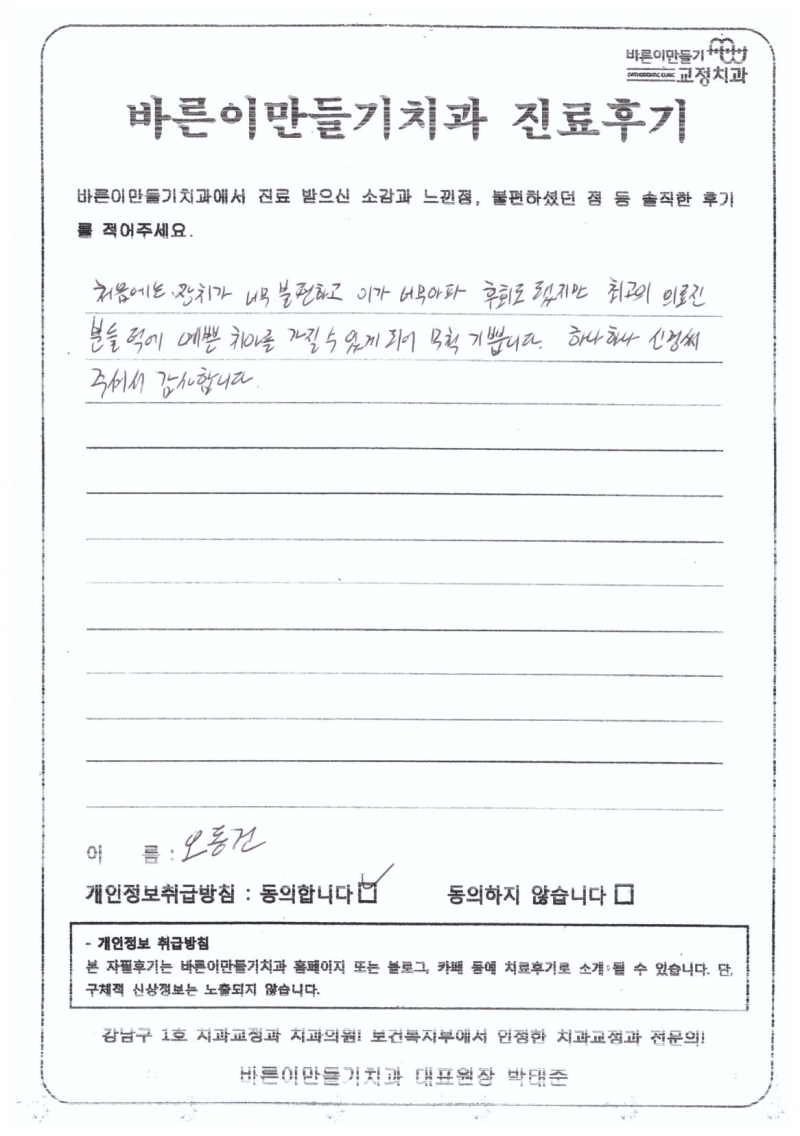 바른이만들기
ORTHODONTIC CLINIC 교정치과
바른이만들기치과 진료후기
바른이만들기치과에서 진료 받으신 소감과 느낀점, 불편하셨던 점 등 솔직한 후기
를 적어주세요.
처음에는 장치가 너무 불편하고 이가 너무아파 후회도 됐지만 최고의 의료진
분들 덕에 예쁜 치아를 가질 수 있게 되어 무척 기쁩니다. 하나하나 신경써
주셔서 감사합니다.
이 름 : 오동건
개인정보취급방침 : 동의합니다 동의하지 않습니다
- 개인정보 취급방침
본 자필후기는 바른이만들기치과 홈페이지 또는 블로그, 카페 등에 치료후기로 소개 될 수 있습니다. 단,
구체적 신상정보는 노출되지 않습니다.
강남구 1호 치과교정과 치과의원! 보건복지부에서 인정한 치과교정과 전문의!
바른이만들기치과 대표원장 박태준